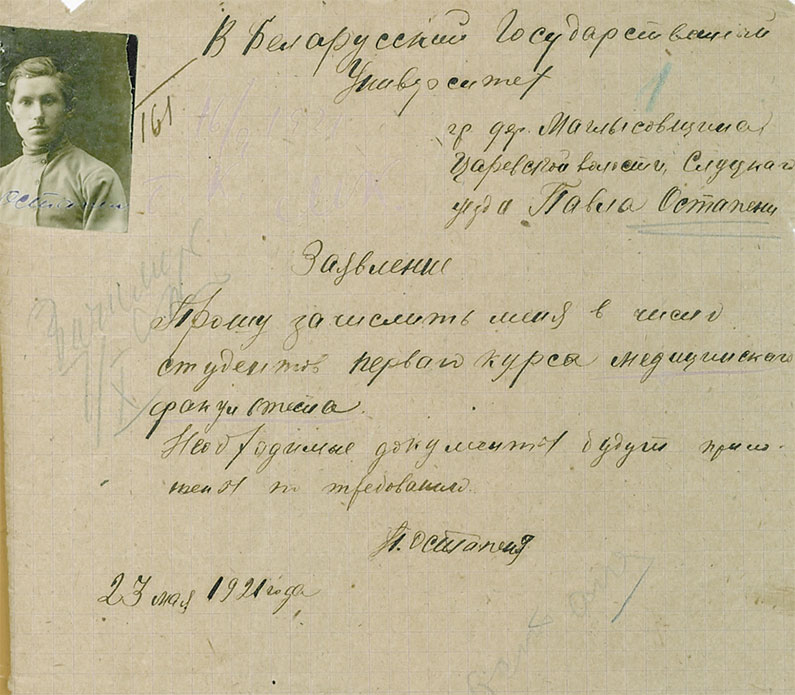 В Беларусский Государственный
Университет
161
гр. дер. Маглысовщина
Царевской волости, Слуцкого
уезда Павла Остапени
Остапени
Заявление
Прошу зачислить меня в число
студентов первого курса медицинского
факультета.
Необходимые документы будут прило-
жены по требованию.
П. Остапеня
23 мая 1921 года